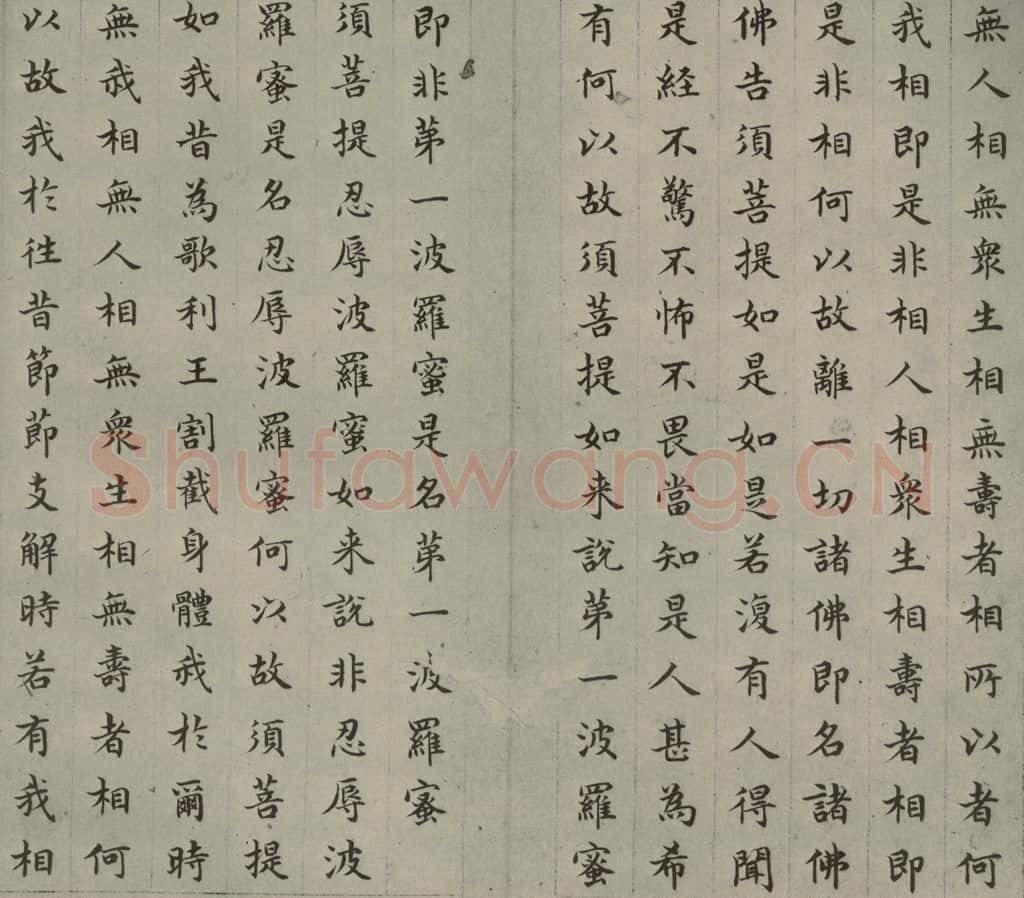 無人相無衆生相無壽者相所以者何
我相即是非相人相衆生相壽者相即
是非相何以故離一切諸佛即名諸佛
佛告須菩提如是如是若復有人得聞
是經不驚不怖不畏當知是人甚為希
有何以故須菩提如来說苐一波羅蜜
即非苐一波羅蜜是名苐一波羅蜜
須菩提忍辱波羅蜜如来說非忍辱波
羅蜜是名忍辱波羅蜜何以故須菩提
如我昔為歌利王割截身體我於爾時
無我相無人相無衆生相無壽者相何
以故我於往昔節節支解時若有我相
Shufawang.CN